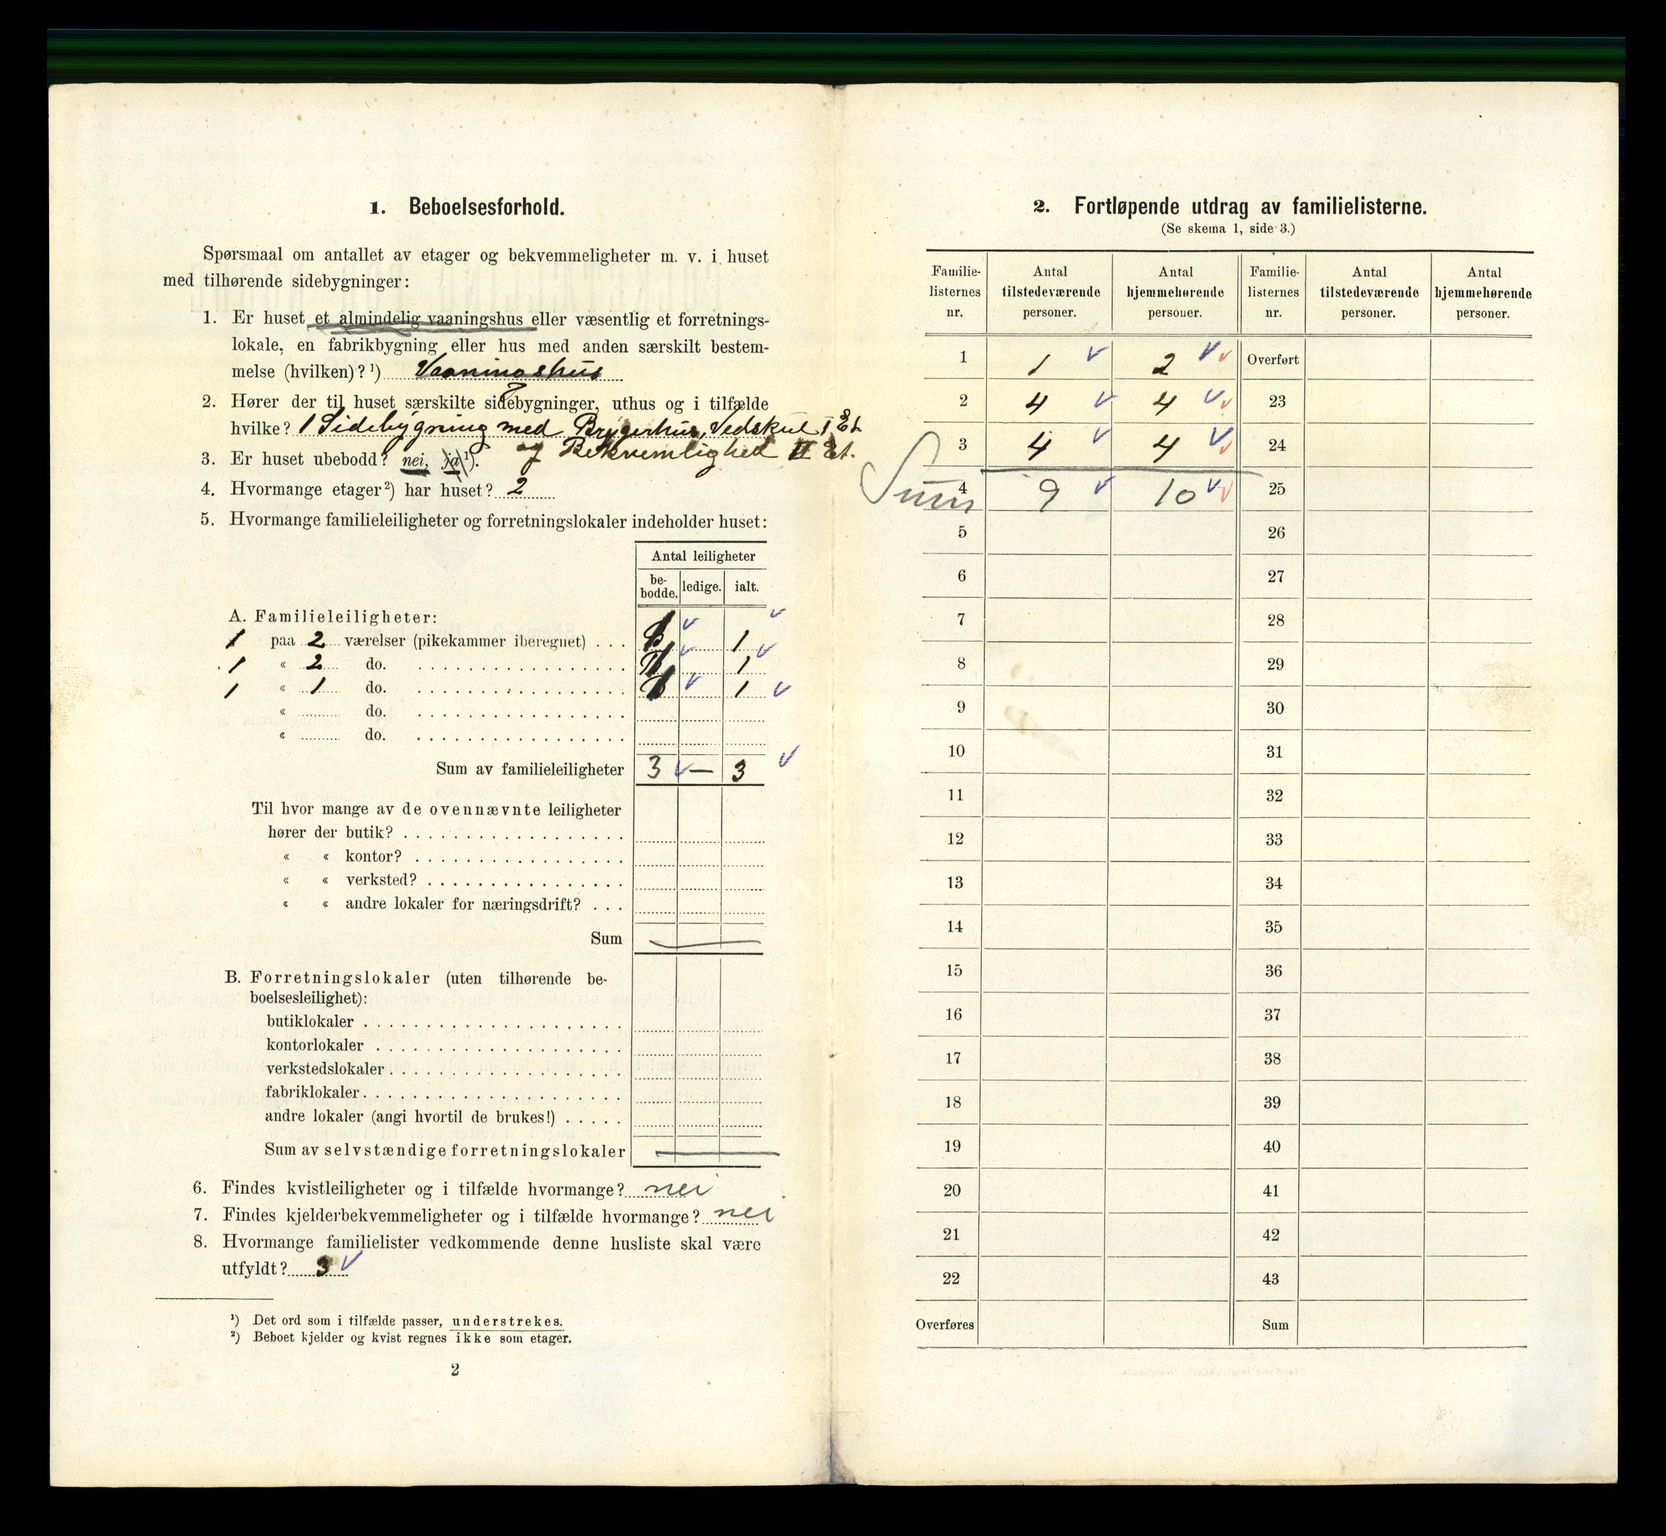 1. Beboelsesforhold.
Spørsmaal om antallet av etager og bekvemmeligheter m. v. i huset
med tilhørende sidebygninger:
1. Er huset et almindelig vaaningshus eller væsentlig et forretnings-
lokale, en fabrikbygning eller hus med anden særskilt bestem-
melse (hvilken)? ¹) Vaaningshus
2. Hører der til huset særskilte sidebygninger, uthus og i tilfælde
hvilke? 1 Sidebygning med Bryggerhus, Vedskul I Et.
og Bekvemlighed II Et.
3. Er huset ubebodd? nei, ja ¹).
4. Hvormange etager ²) har huset? 2
5. Hvormange familieleiligheter og forretningslokaler indeholder huset:
Antal leiligheter
be-bodde. ledige. ialt.
A. Familieleiligheter:
1 paa 2 værelser (pikekammer iberegnet) . . . 1
1 « 2 do. 1
1 « 1 do. 1
« do.
« do.
Sum av familieleiligheter 3 — 3
Til hvor mange av de ovennævnte leiligheter
hører der butik?
« « kontor?
« « verksted?
« « andre lokaler for næringsdrift? . . .
Sum
B. Forretningslokaler (uten tilhørende be-
boelsesleilighet):
butiklokaler
kontorlokaler
verkstedslokaler
fabriklokaler
andre lokaler (angi hvortil de brukes!)
Sum av selvstændige forretningslokaler
6. Findes kvistleiligheter og i tilfælde hvormange? nei
7. Findes kjelderbekvemmeligheter og i tilfælde hvormange? nei
8. Hvormange familielister vedkommende denne husliste skal være
utfyldt? 3
¹) Det ord som i tilfælde passer, understrekes.
²) Beboet kjelder og kvist regnes ikke som etager.
2
2. Fortløpende utdrag av familielisterne.
(Se skema 1, side 3.)
Familie-listernes nr. Antal tilstedeværende personer. Antal hjemmehørende personer. Familie-listernes nr. Antal tilstedeværende personer. Antal hjemmehørende personer.
1 1 2 Overført
2 4 4 23
3 4 4 24
Sum 4 9 10 25
5 26
6 27
7 28
8 29
9 30
10 31
11 32
12 33
13 34
14 35
15 36
16 37
17 38
18 39
19 40
20 41
21 42
22 43
Overføres Sum